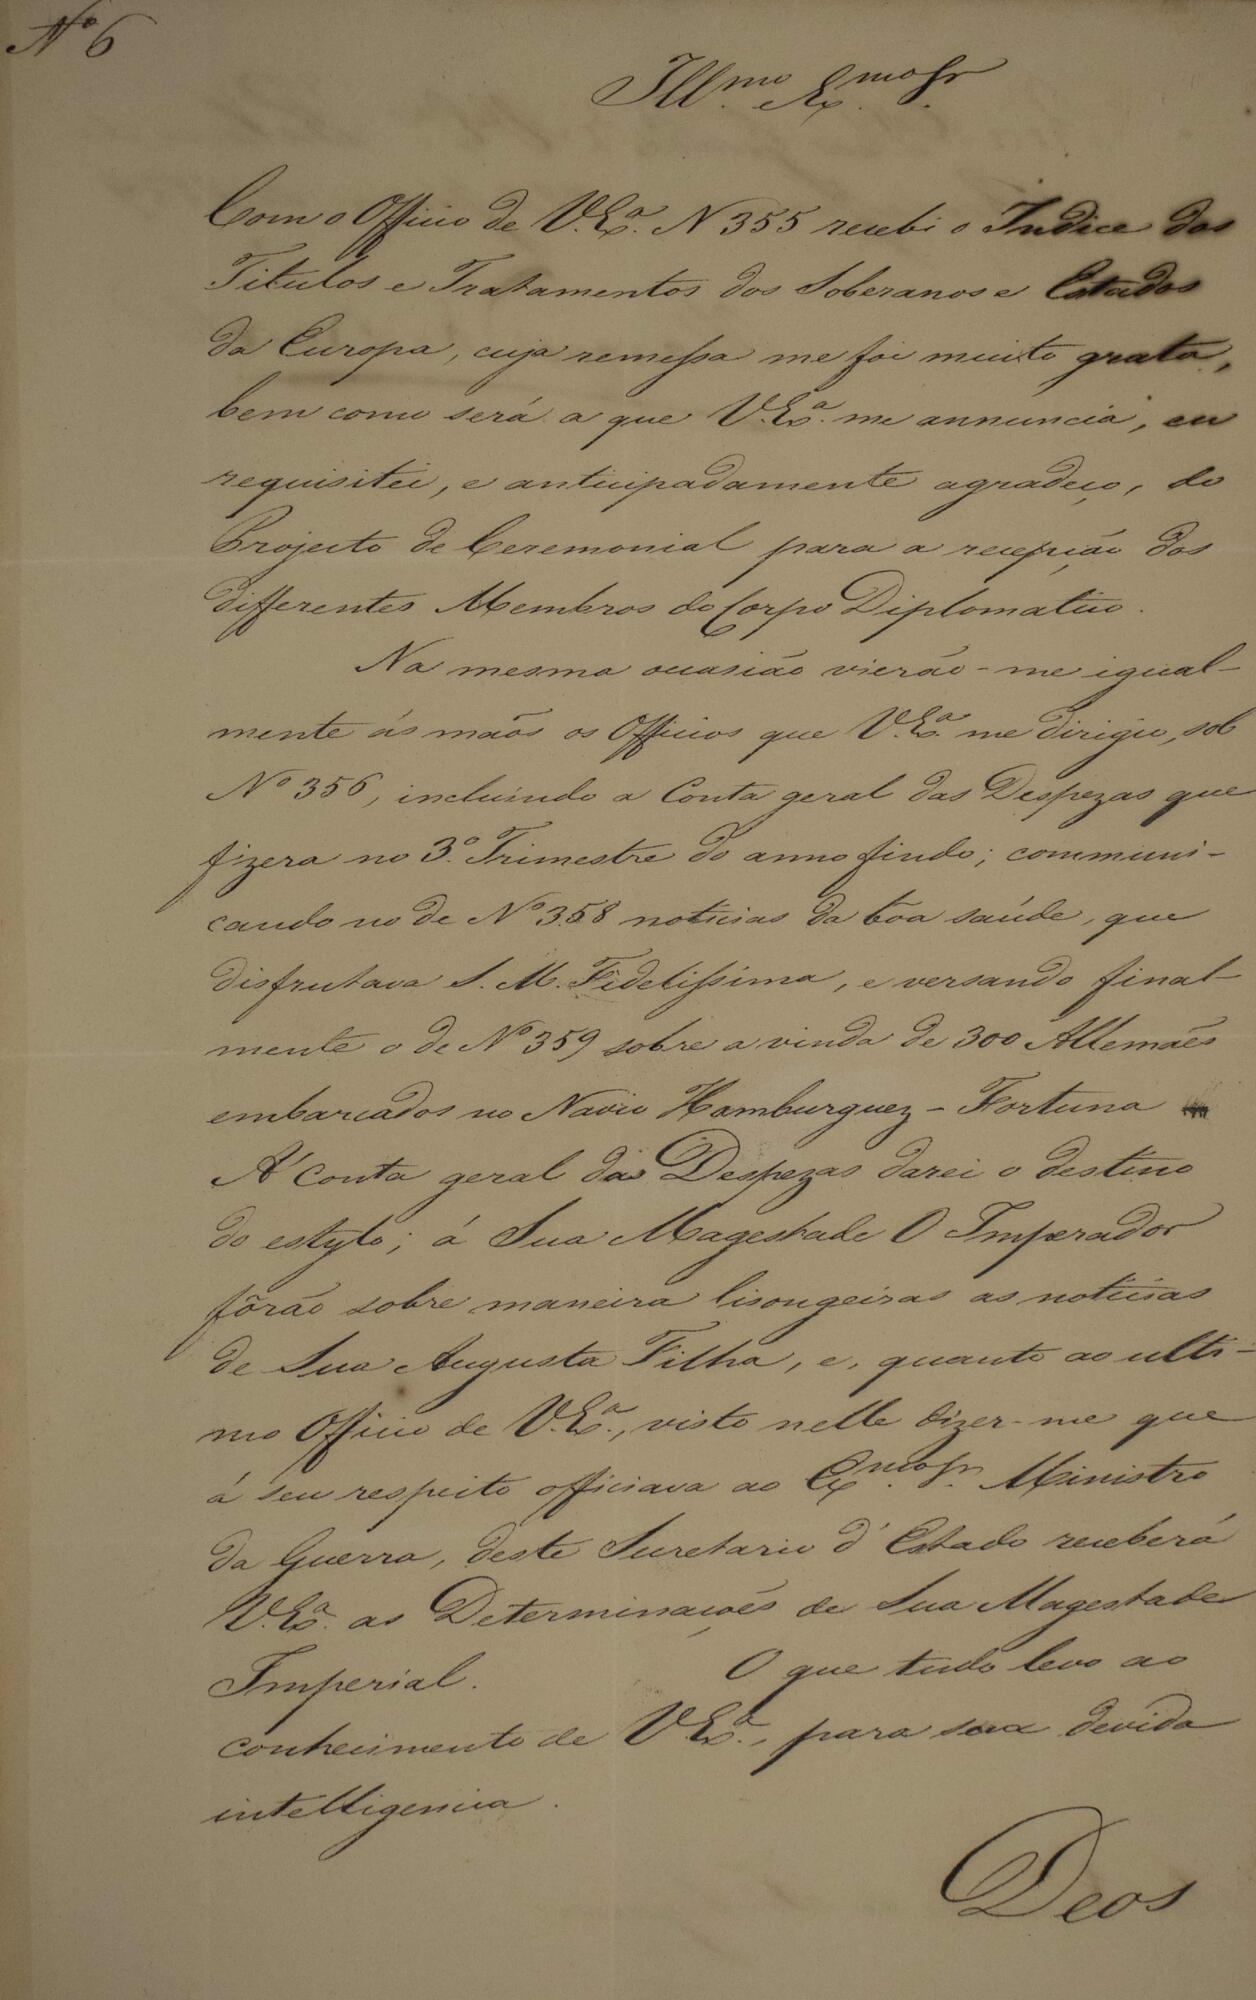 Nº 6
Illmo. Exmo Sr.
Com o Officio de V.Exª. N 355 recebi o Indice dos
Titulos e Tratamentos dos Soberanos e Estados
da Europa, cuja remessa me foi muito grata,
bem como será a que V.Exª. me annuncia, eu
requisitei, e anticipadamente agradeço, do
Projecto de Ceremonial para a recepção dos
differentes Membros do Corpo Diplomatico.
Na mesma occasião vierão-me igual-
mente ás mãos os Officios que V.Exª. me dirigio, sob
Nº 356, incluindo a Conta geral das Despezas que
fizera no 3º. Trimestre do anno findo; communi-
cando no de Nº 358 noticias da bôa saúde, que
disfrutava S. M. Fidelissima, e versando final-
mente o de Nº 359 sobre a vinda de 300 Allemães
embarcados no Navio Hamburguez - Fortuna
Á conta geral das Despezas darei o destino
do estylo; á Sua Magestade O Imperador
fôrão sobre maneira lisongeiras as noticias
de Sua Augusta Filha, e, quanto ao ulti-
mo Officio de V.Exª., visto nelle dizer-me que
á seu respeito officiava ao Exmo. Sr. Ministro
da Guerra, deste Secretario d'Estado receberá
V.Exª. as Determinações de Sua Magestade
Imperial. O que tudo levo ao
conhecimento de V.Exª., para sua devida
intelligencia.
Deos